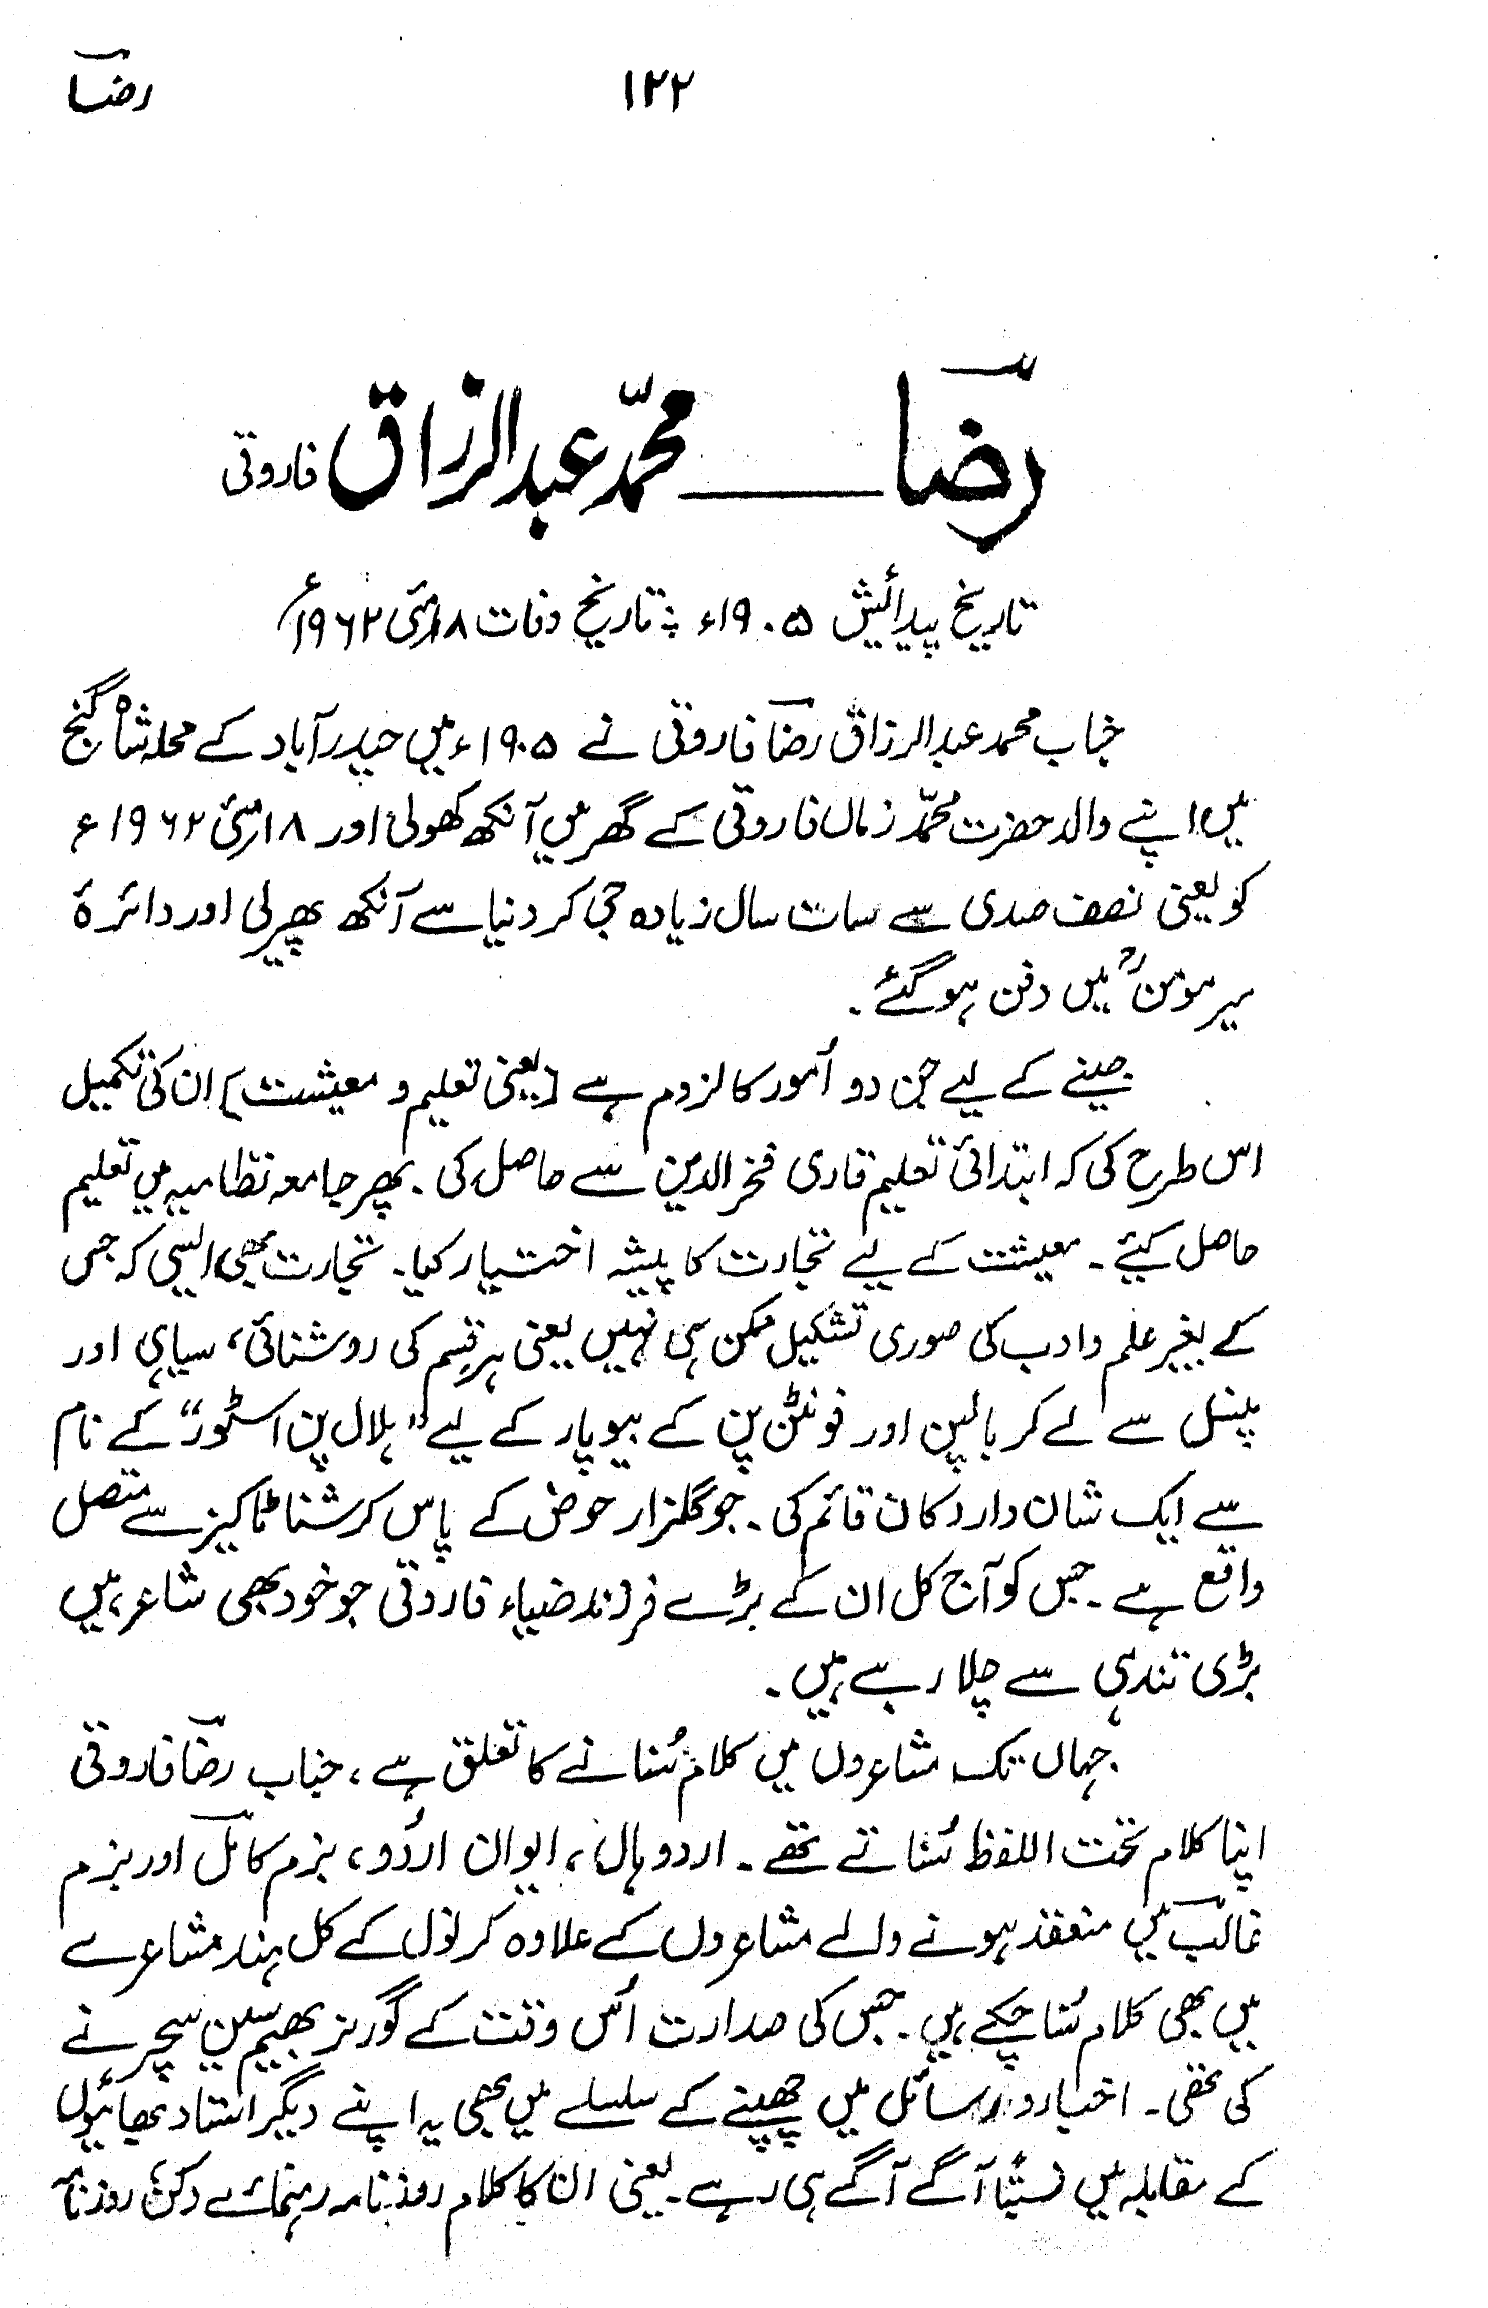 رضاؔ ۱۲۲
رضاؔ ـــــ محمّد عبدالرزاق فاروقی
تاریخ پیدائیش ۱۹۰۵ء ÷ تاریخ وفات ۱۸؍مئی ۱۹۶۲ء
جناب محمد عبدالرزاق رضاؔ فاروقی نے ۱۹۰۵ء میں حیدرآباد کے محلہ شاہ گنج
میں اپنے والد حضرت محمّد زماں فاروقی کے گھر میں آنکھ کھولی اور ۱۸؍مئی ۱۹۶۲ء
کو یعنی نصف صدی سے سات سال زیادہ جی کر دنیا سے آنکھ پھیر لی اور دائرۂ
میر مومنؒ میں دفن ہو گئے ۔
جینے کے لیے جن دو اُمور کا لزوم ہے [یعنی تعلیم و معیشت] ان کی تکمیل
اس طرح کی کہ ابتدائی تعلیم قاری فخرالدین سے حاصل کی ۔ پھر جامعہ نظامیہ میں تعلیم
حاصل کیئے ۔ معیشت کے لیے تجارت کا پیشہ اختیار کیا ۔ تجارت بھی ایسی کہ جس
کے بغیر علم و ادب کی صوری تشکیل ممکن ہی نہیں یعنی ہر قسم کی روشنائی، سیاہی اور
پنسل سے لے کر بالپن اور فونٹن پن کے بیوپار کے لیے "ہلال پن اسٹور" کے نام
سے ایک شان دار دکان قائم کی ۔ جو گلزار حوض کے پاس کرشنا ٹاکیز سے متصل
واقع ہے ۔ جس کو آج کل ان کے بڑے فرزند ضیاء فاروقی جو خود بھی شاعر ہیں
بڑی تندہی سے چلا رہے ہیں ۔
جہاں تک مشاعروں میں کلام سُنانے کا تعلق ہے، جناب رضاؔ فاروقی
اپنا کلام تحت اللفظ سُناتے تھے ۔ اردو ہال، ایوان اردُو، بزم کاملؔ اور بزم
غالبؔ میں منعقد ہونے والے مشاعروں کے علاوہ کرنول کے کل ہند مشاعرے
میں بھی کلام سُنا چکے ہیں ۔ جس کی صدارت اُس وقت کے گورنر بھیم سین سچر نے
کی تھی ۔ اخبار و رسائل میں چھپنے کے سلسلے میں بھی یہ اپنے دیگر استاد بھائیوں
کے مقابلہ میں نسبتاً آگے آگے ہی رہے ۔ یعنی ان کا کلام روزنامہ رہنمائے دکن، روزنامہ